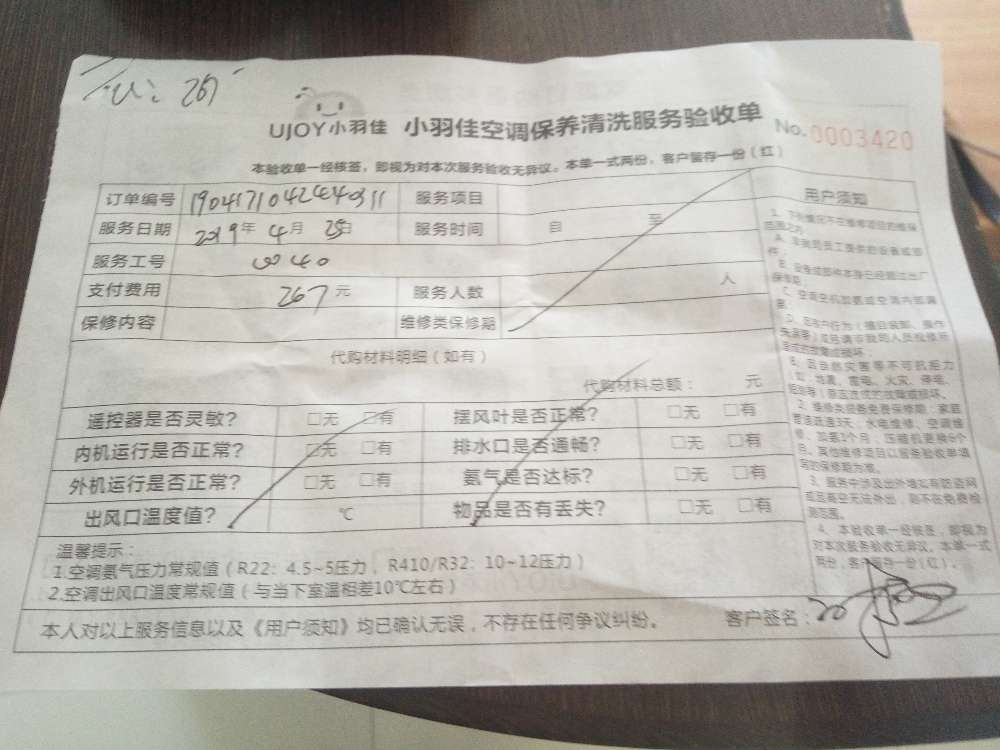 267
UJOY小羽佳 小羽佳空调保养清洗服务验收单 No.0003420
本验收单一经核签，即视为对本次服务验收无异议。本单一式两份，客户留存一份（红）
订单编号 服务项目
服务日期 2019年4月25日 服务时间 自 至
服务工号 0040
支付费用 267元 服务人数 人
保修内容 维修类保修期
代购材料明细（如有）
代购材料总额： 元
遥控器是否灵敏？ □无 □有 摆风叶是否正常？ □无 □有
内机运行是否正常？ □无 □有 排水口是否通畅？ □无 □有
外机运行是否正常？ □无 □有 氨气是否达标？ □无 □有
出风口温度值？ ℃ 物品是否有丢失？ □无 □有
温馨提示：
1.空调氨气压力常规值（R22：4.5~5压力，R410/R32：10~12压力）
2.空调出风口温度常规值（与当下室温相差10℃左右）
本人对以上服务信息以及《用户须知》均已确认无误，不存在任何争议纠纷。 客户签名：
用户须知
A、非我司员工提供的设备或部
件；
B、设备或部件本身已经超过出厂
保修期；
E、因自然灾害等不可抗拒力
（如：地震、雷电、火灾、停电、
3、服务中涉及出外墙如有防盗网
或是高空无法外出，则不在免费检
测范围。
4、本验收单一经核签，即视为
对本次服务验收无异议。本单一式
两份，客户留存一份（红）。